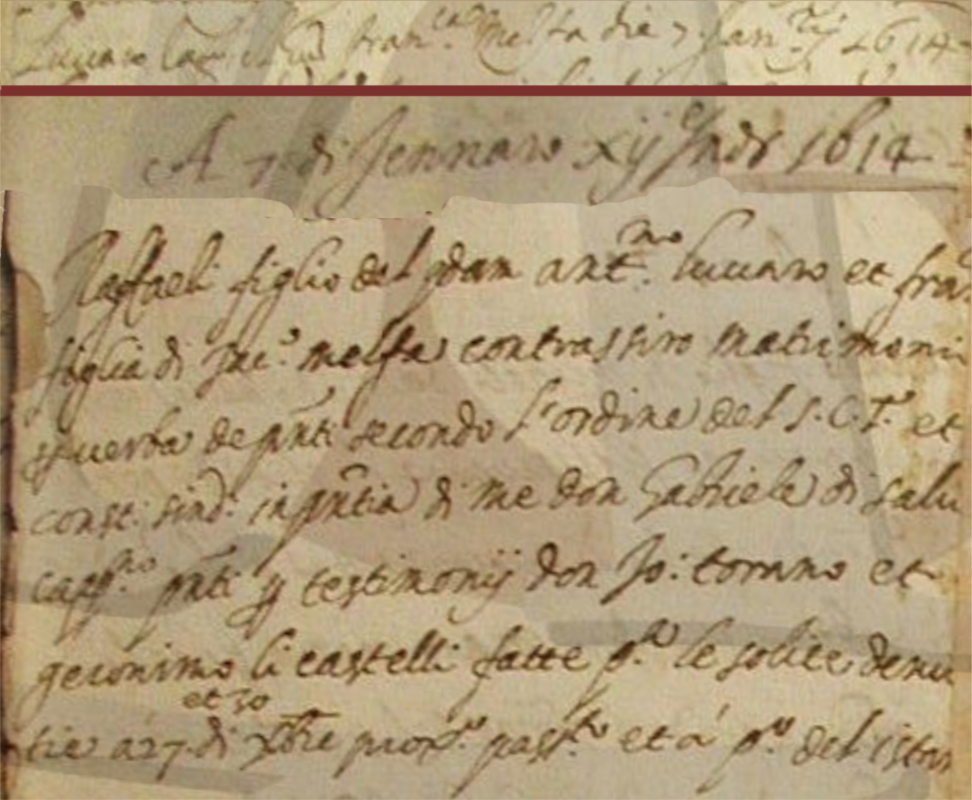 die 7 1614
A 7 di Jennaro xij Indi 1614
Raffaeli figlio del qdam ant.mo lucaro et fran
figlia di Jac.o melfa contrassiro matrimoni
p verba de pnti secondo l'ordine del S.C.T. et
const: sind: in pntia di me don Gabriele di salu
capp.no pnti p testimonij don Jo: torano et
geronimo li castelli fatte p.a le solite denu
et 30
tie a 27 di xbre pros.o pass.to et a p.o del istan